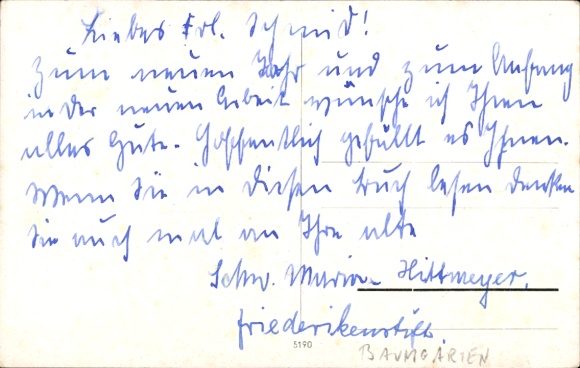 Liebes Frl. Schmid!
Zum neuen Jahr und zum Anfang
in der neuen Arbeit wünsche ich Ihnen
alles Gute. Hoffentlich gefällt es Ihnen.
Wenn Sie in diesen Buch lesen denken
Sie auch mal an Ihre alte
Schw. Maria Hittmeyer.
Friederikenstift.
5190
BAUMGARTEN